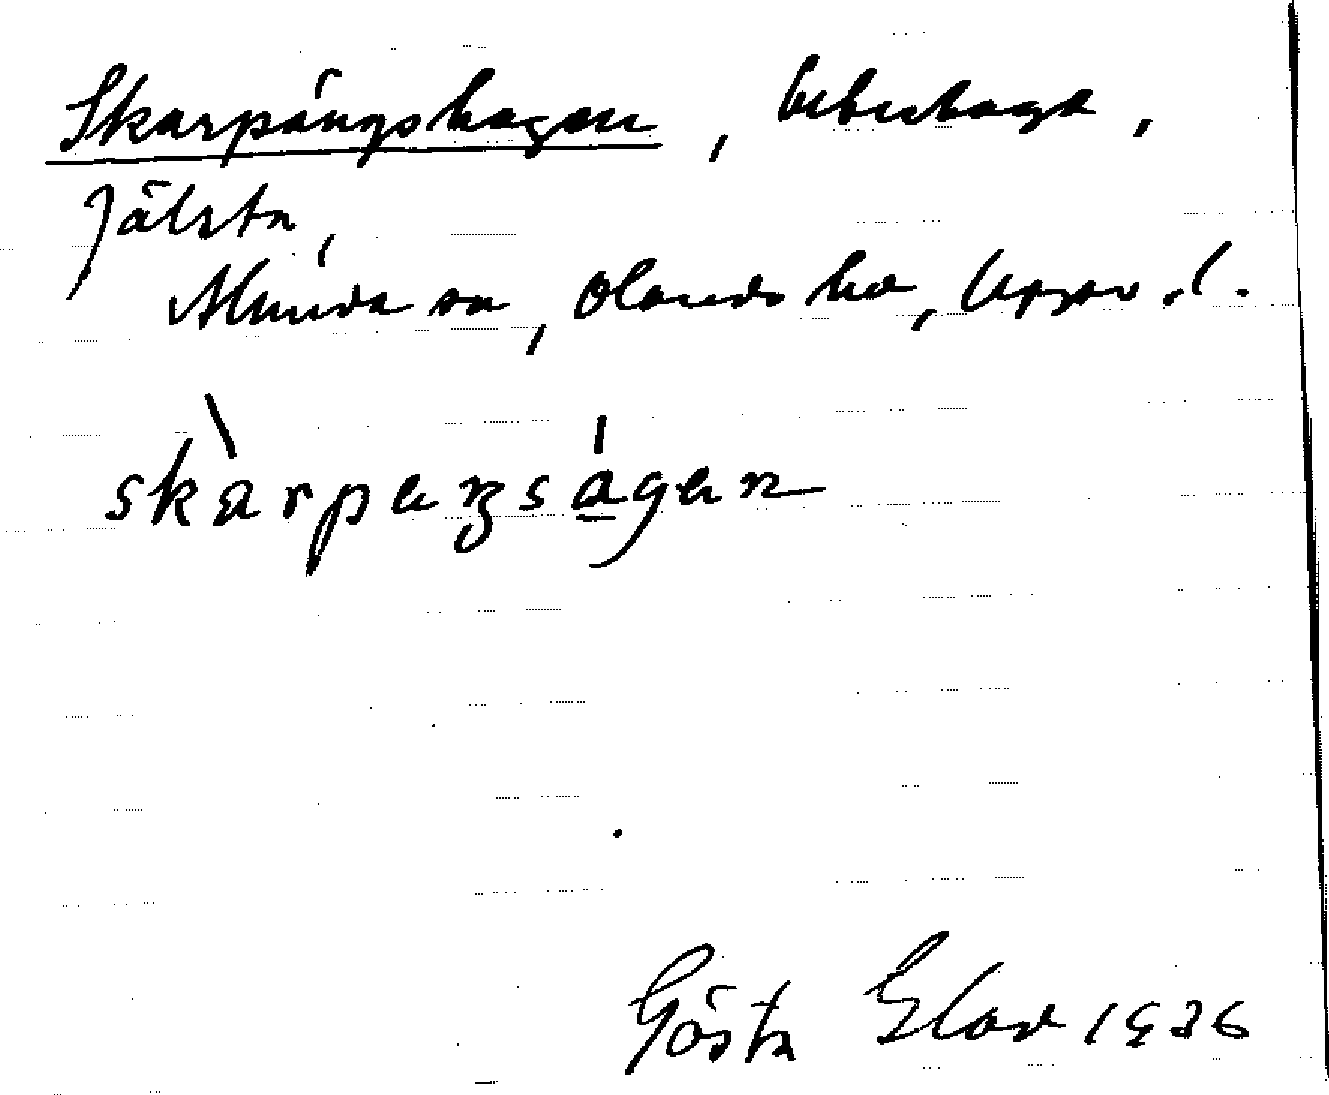 Skarpängshagen, beteshage,
Jälsta,
Almunda sn, Olands hd, Upps. l.
skàrpeŋságen
Gösta Elov 1936